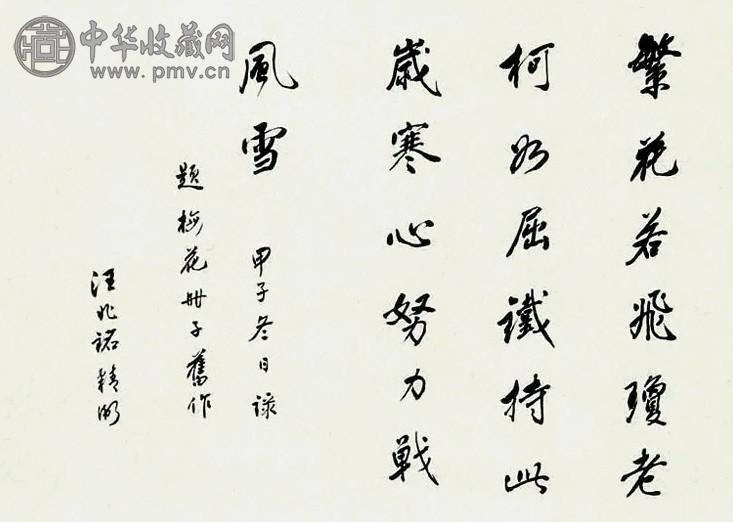 中华收藏网
www.pmv.cn
繁花若飛瓊老
柯如屈鐵持此
歲寒心努力戰
風雪
甲子冬日录
題梅花冊子舊作
汪兆銘精衛